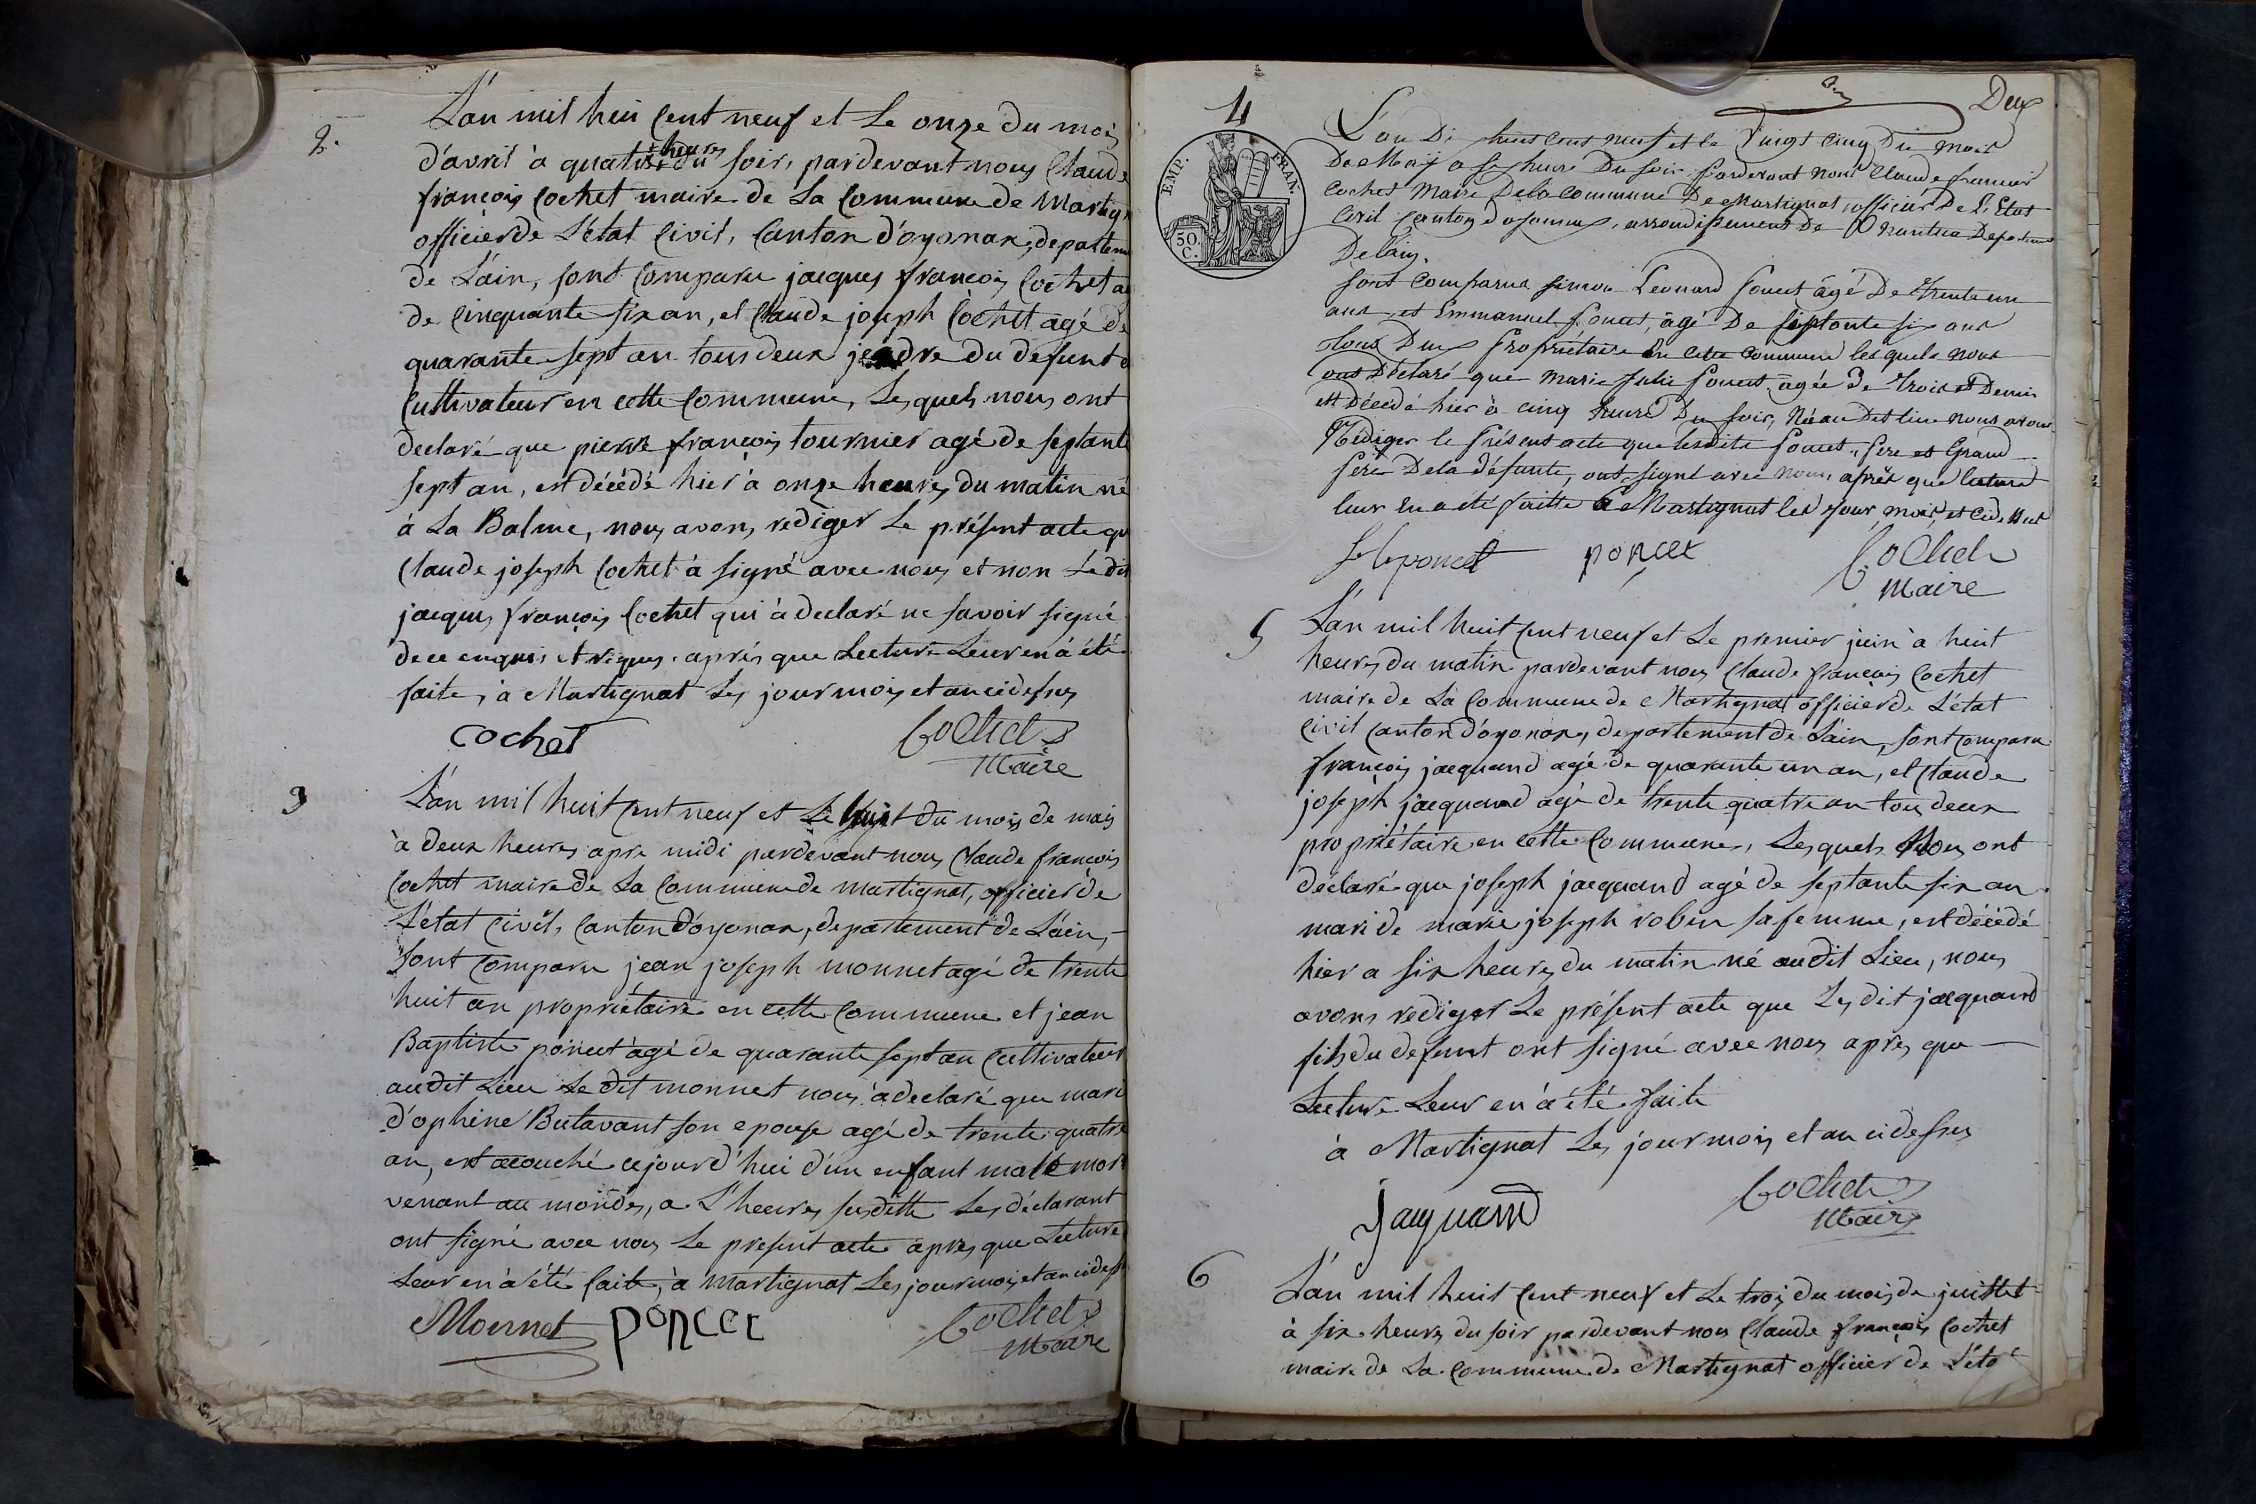 2.
L'an mil hui cent neuf et Le onze du moi
d'avril à quatre heures du soir, pardevant nous Claude
françois Cochet maire de La Commune de Martign
officier de L'état Civil, Canton d'oyonax, departem
de L'ain, sont Comparu jacques françois Cochet a
de Cinquante six an, et Claude joseph Cochet agé de
quarante sept an tous deux jendre du defunt
Cultivateur en cette Commune, Lesquels nous ont
declaré que pierre françois tournier agé de septante
sept an, est décédé hier à onze heures du matin né
à La Balme, nous avons rediger Le présent acte qu
Claude joseph Cochet à signé avec nous et non Le dit
jacques françois Cochet qui à declaré ne savoir signé
de ce enquis et requis après que Lecture Leur en à été
faite, à Martignat Les jour mois et an cidessus
cochet Cochet
Maire
3
L'an mil huit Cent neuf et Le huit du mois de mais
à deux heures apre midi pardevant nous Claude françois
Cochet maire de La Commune de martignat, officier de
L'état Civil, Canton D'oyonax, departement de L'ain,
Sont Comparu jean joseph monnet agé de trente
huit an propriétaire en cette Commune et jean
Baptiste poncet agé de quarante sept an Cultivateur
audit Lieu Le dit monnet nous à declaré que mari
d'ophine Butavant son epouse agé de trente quatre
an, est acouché cejourd'hui d'un enfant male mort
venant au mondes, a L'heures susditte Les déclarant
ont signé avec nous Le present acte après que Lecture
Leur en à été faite, à Martignat Les jour mois et an cidess
Monnet poncet Cochet
Maire
4
Deux
EMP. FRAN.
50 C.
L'an Di huit cens neuf et le Vingt Cinq Du mois
De Maij a six heure Du soir pardevant nous Claude francois
Cochet Maire Dela commune De Martignat officier De L'Etat
Civil Canton d'oyonnax, arrondissement De Nantua Departem
Delain.
sont comparus simon Leonard Poncet âgé De Trente un
ans et Emmanuel Poncet, âgé De septante six ans
tous Deux Propriétaire En cette commune les quels nous
ont Déclaré que Marie Julie Poncet âgée De trois et Demi
est Décédé hier à cinq heure Du soir, Née au Dit lieu Nous avons
Rédiger le Présent acte que lesdits Poncet, Père et Grand
Père De la défunte, ont signé avec nous, après que lecture
leur En a été faitte à Martignat les jour mois et
poncet poncet Cochet
Maire
5
L'an mil huit Cent neuf et Le premier juin à huit
heures du matin pardevant nous Claude françois Cochet
maire de La Commune de Martignat officier de L'état
Civil Canton D'oyonax, departement de L'ain, sont comparu
françois jacquand agé de quarante un an, et Claude
joseph jacquand agé de trente quatre an tous deux
propriétaire en cette Commune, Lesquels Nous ont
déclaré que joseph jacquand agé de septante six an
mari de marie joseph robin sa femme, est décédé
hier a six heures du matin né audit Lieu, nous
avons rediger Le présent acte que Les dit jacquand
fils du defunt ont signé avec nous apres que
Lecture Leur en à été faite
à Martignat Les jour mois et an cidessus
Jacquand Cochet
Maire
6
L'an mil huit Cent neuf et Le trois du mois de juillet
à six heures du soir pardevant nous Claude françois Cochet
maire de La Commune de Martignat officier de L'éta